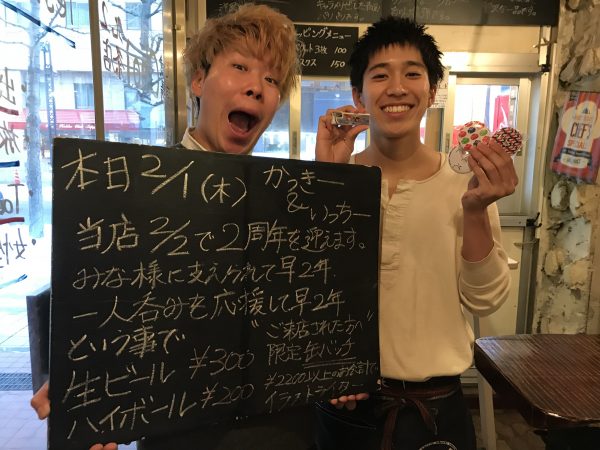 ッピングメニュー
100
150
本日2/1(木) かっきー
& いっちー
当店2/2で2周年を迎えます。
みな様に支えられて早2年
一人呑みを応援して早2年
という事で
"ご来店された方"
生ビール ¥300
限定缶バッチ
ハイボール ¥200
¥2200以上のお会計で
イラストライター
CHEF'S
SPECIAL